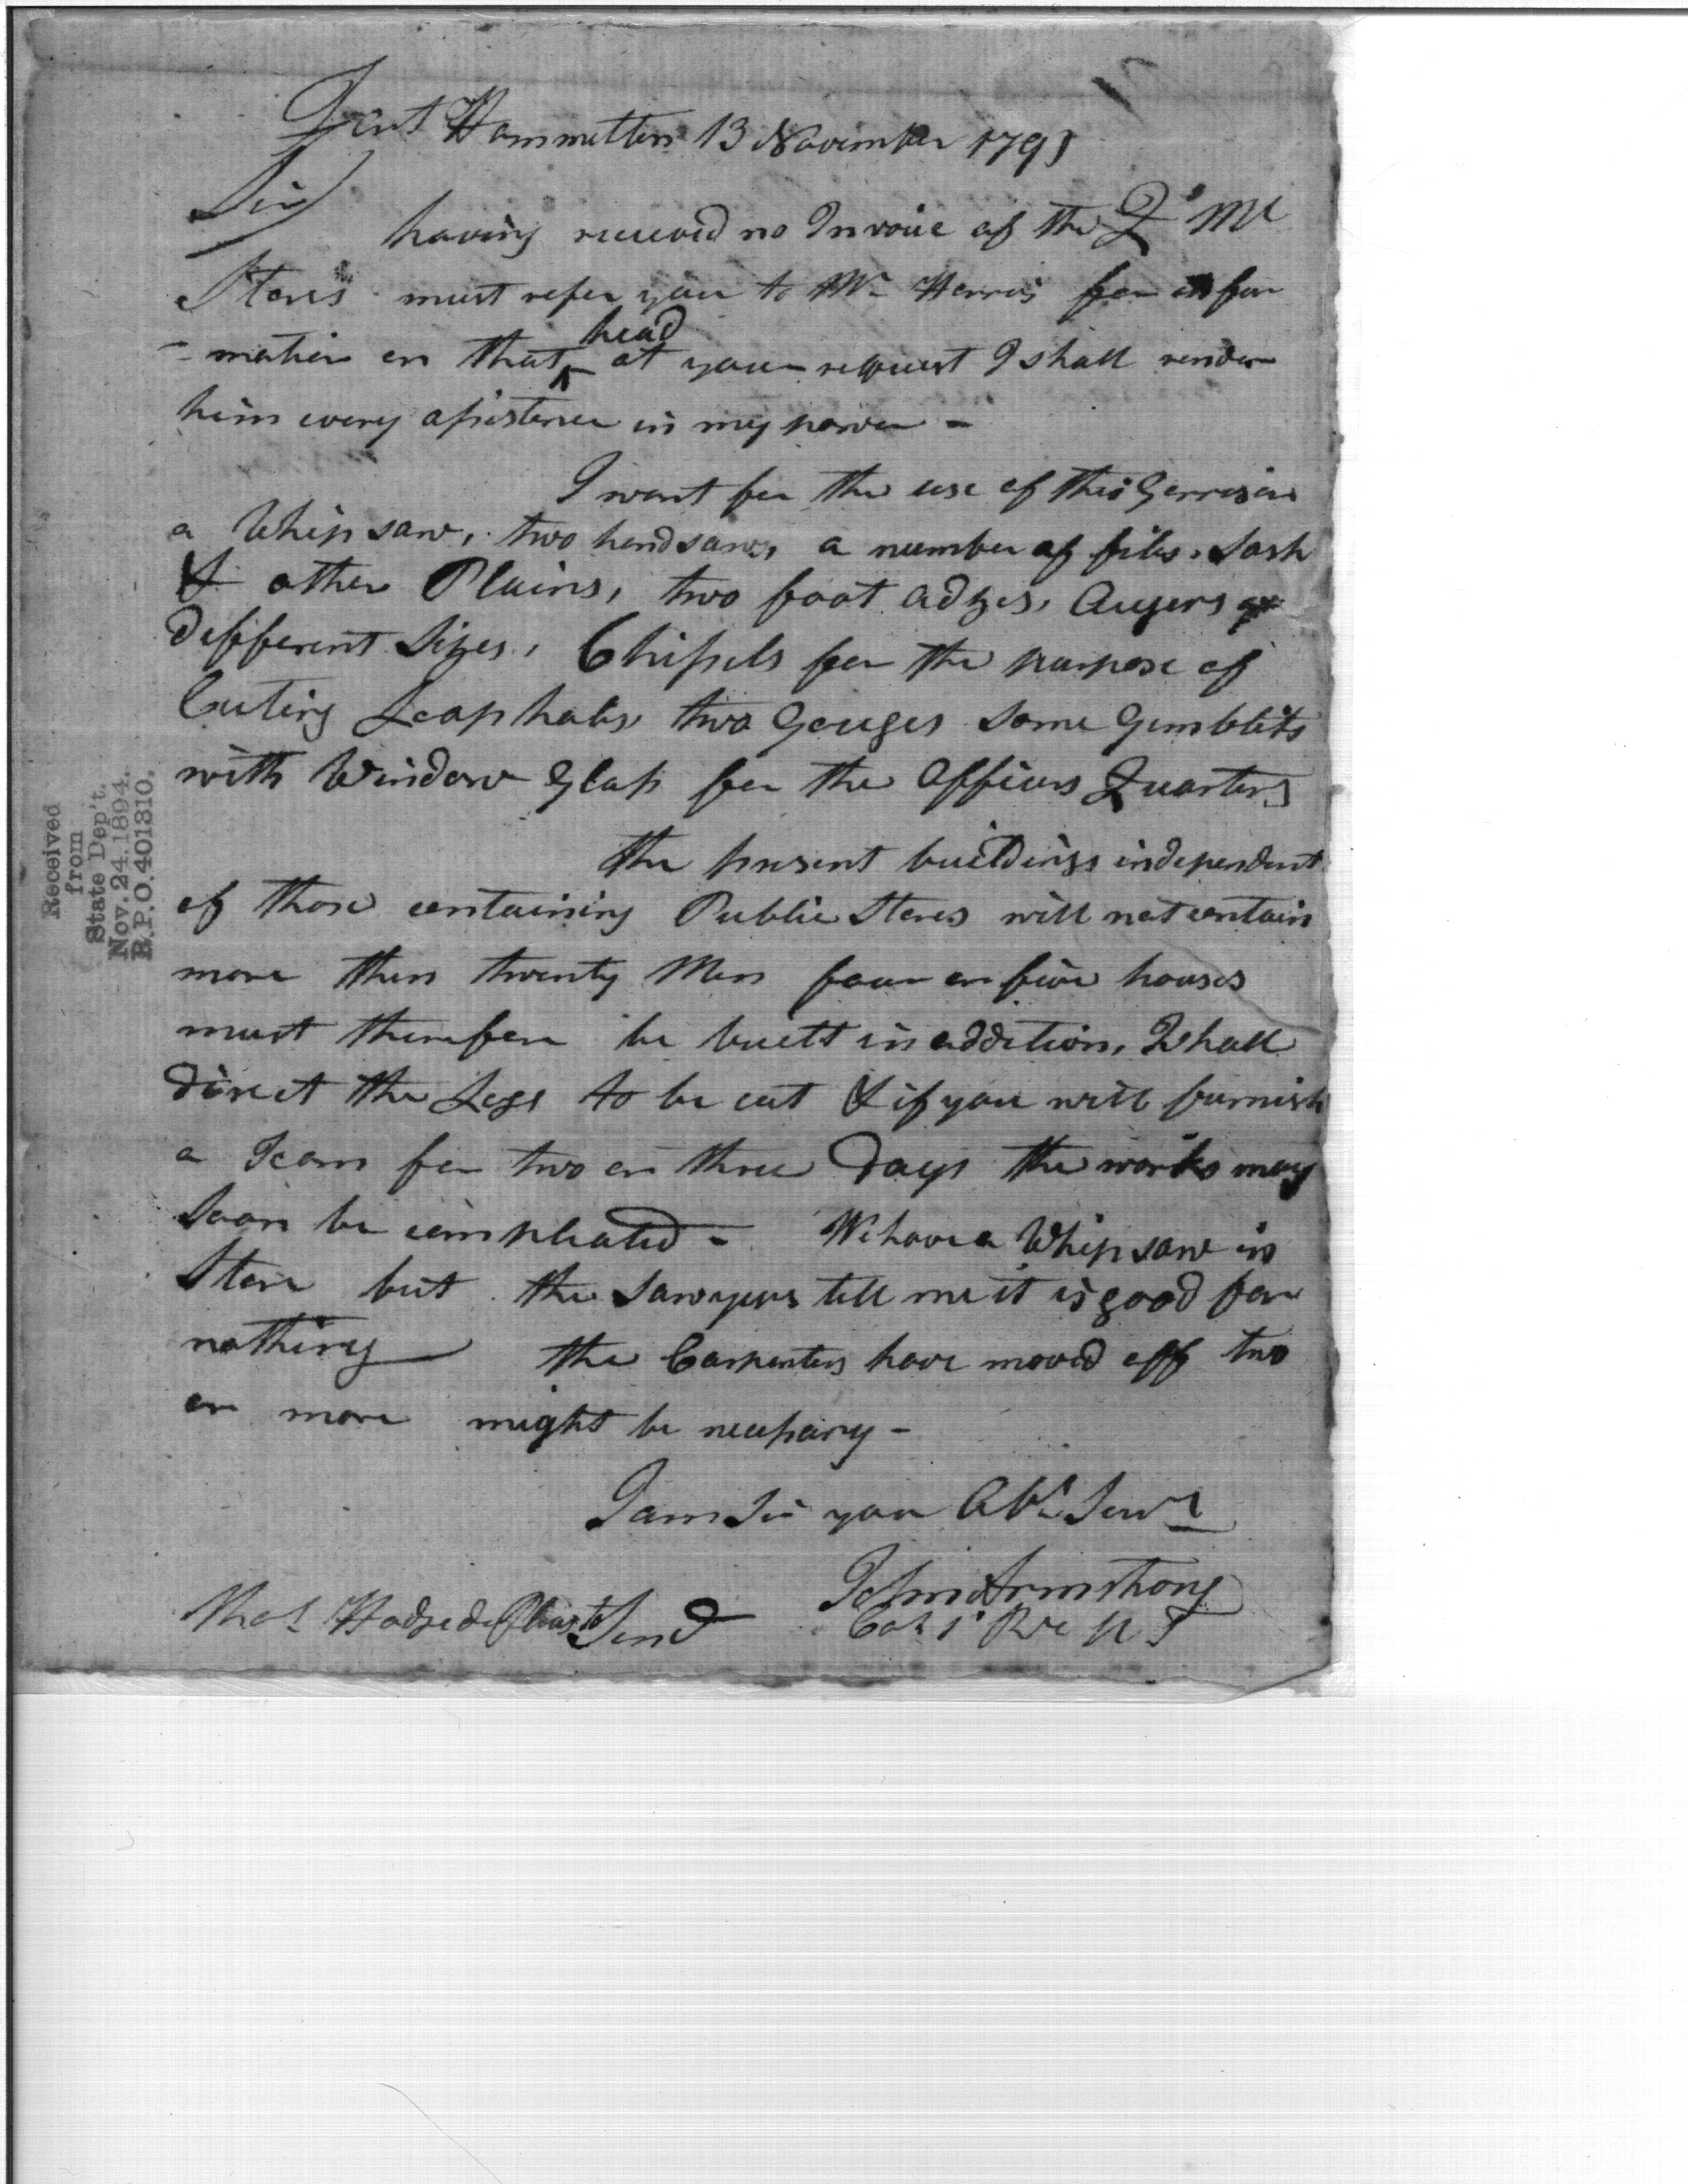 Fort Hammilton 13 November 1791
Sir
having received no Invoice of the Q. Mr
Stores must refer you to Mr Harris for infor
-mation on that head at your request I shall render
him every assistance in my power -
I want for the use of this Garrison
a Whip saw, two handsaws, a number of files, Sash
& other Plains, two foot adzes, Augers of
different Sizes, Chissels for the purpose of
Cuting Loop hols, two Gouges some Gimblits
with Window Glass for the Officers Quarters
the present buildings independent
of those containing Public Stores will not contain
more then twenty Men four or five houses
must therefore be built in addition, I shall
direct the Logs to be cut & if you will furnish
a Team for two or three Days the works may
soon be compleated - We have a Whip saw in
Store but the Sawyers tell me it is good for
nothing the Carpenters have moved off two
or more might be necessary -
I am Sir your Obt Servt
John Armstrong
Capt 1t Rt
Send
Received
from
State Dep't.
Nov. 24. 1894.
R.P.O. 401310.